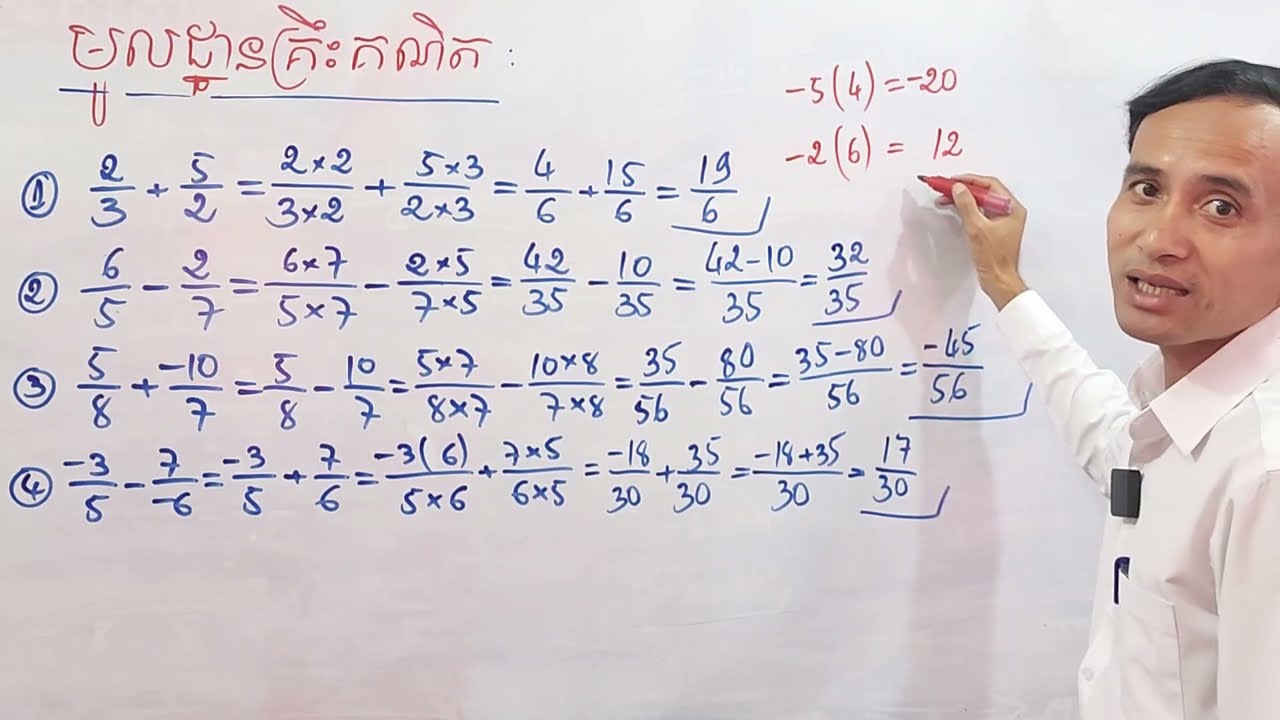 មូលដ្ឋានគ្រឹះគណិត :
-5(4) = -20
-2(6) = 12
① 2/3 + 5/2 = 2×2/3×2 + 5×3/2×3 = 4/6 + 15/6 = 19/6
② 6/5 - 2/7 = 6×7/5×7 - 2×5/7×5 = 42/35 - 10/35 = 42-10/35 = 32/35
③ 5/8 + -10/7 = 5/8 - 10/7 = 5×7/8×7 - 10×8/7×8 = 35/56 - 80/56 = 35-80/56 = -45/56
④ -3/5 - 7/-6 = -3/5 + 7/6 = -3(6)/5×6 + 7×5/6×5 = -18/30 + 35/30 = -18+35/30 = 17/30